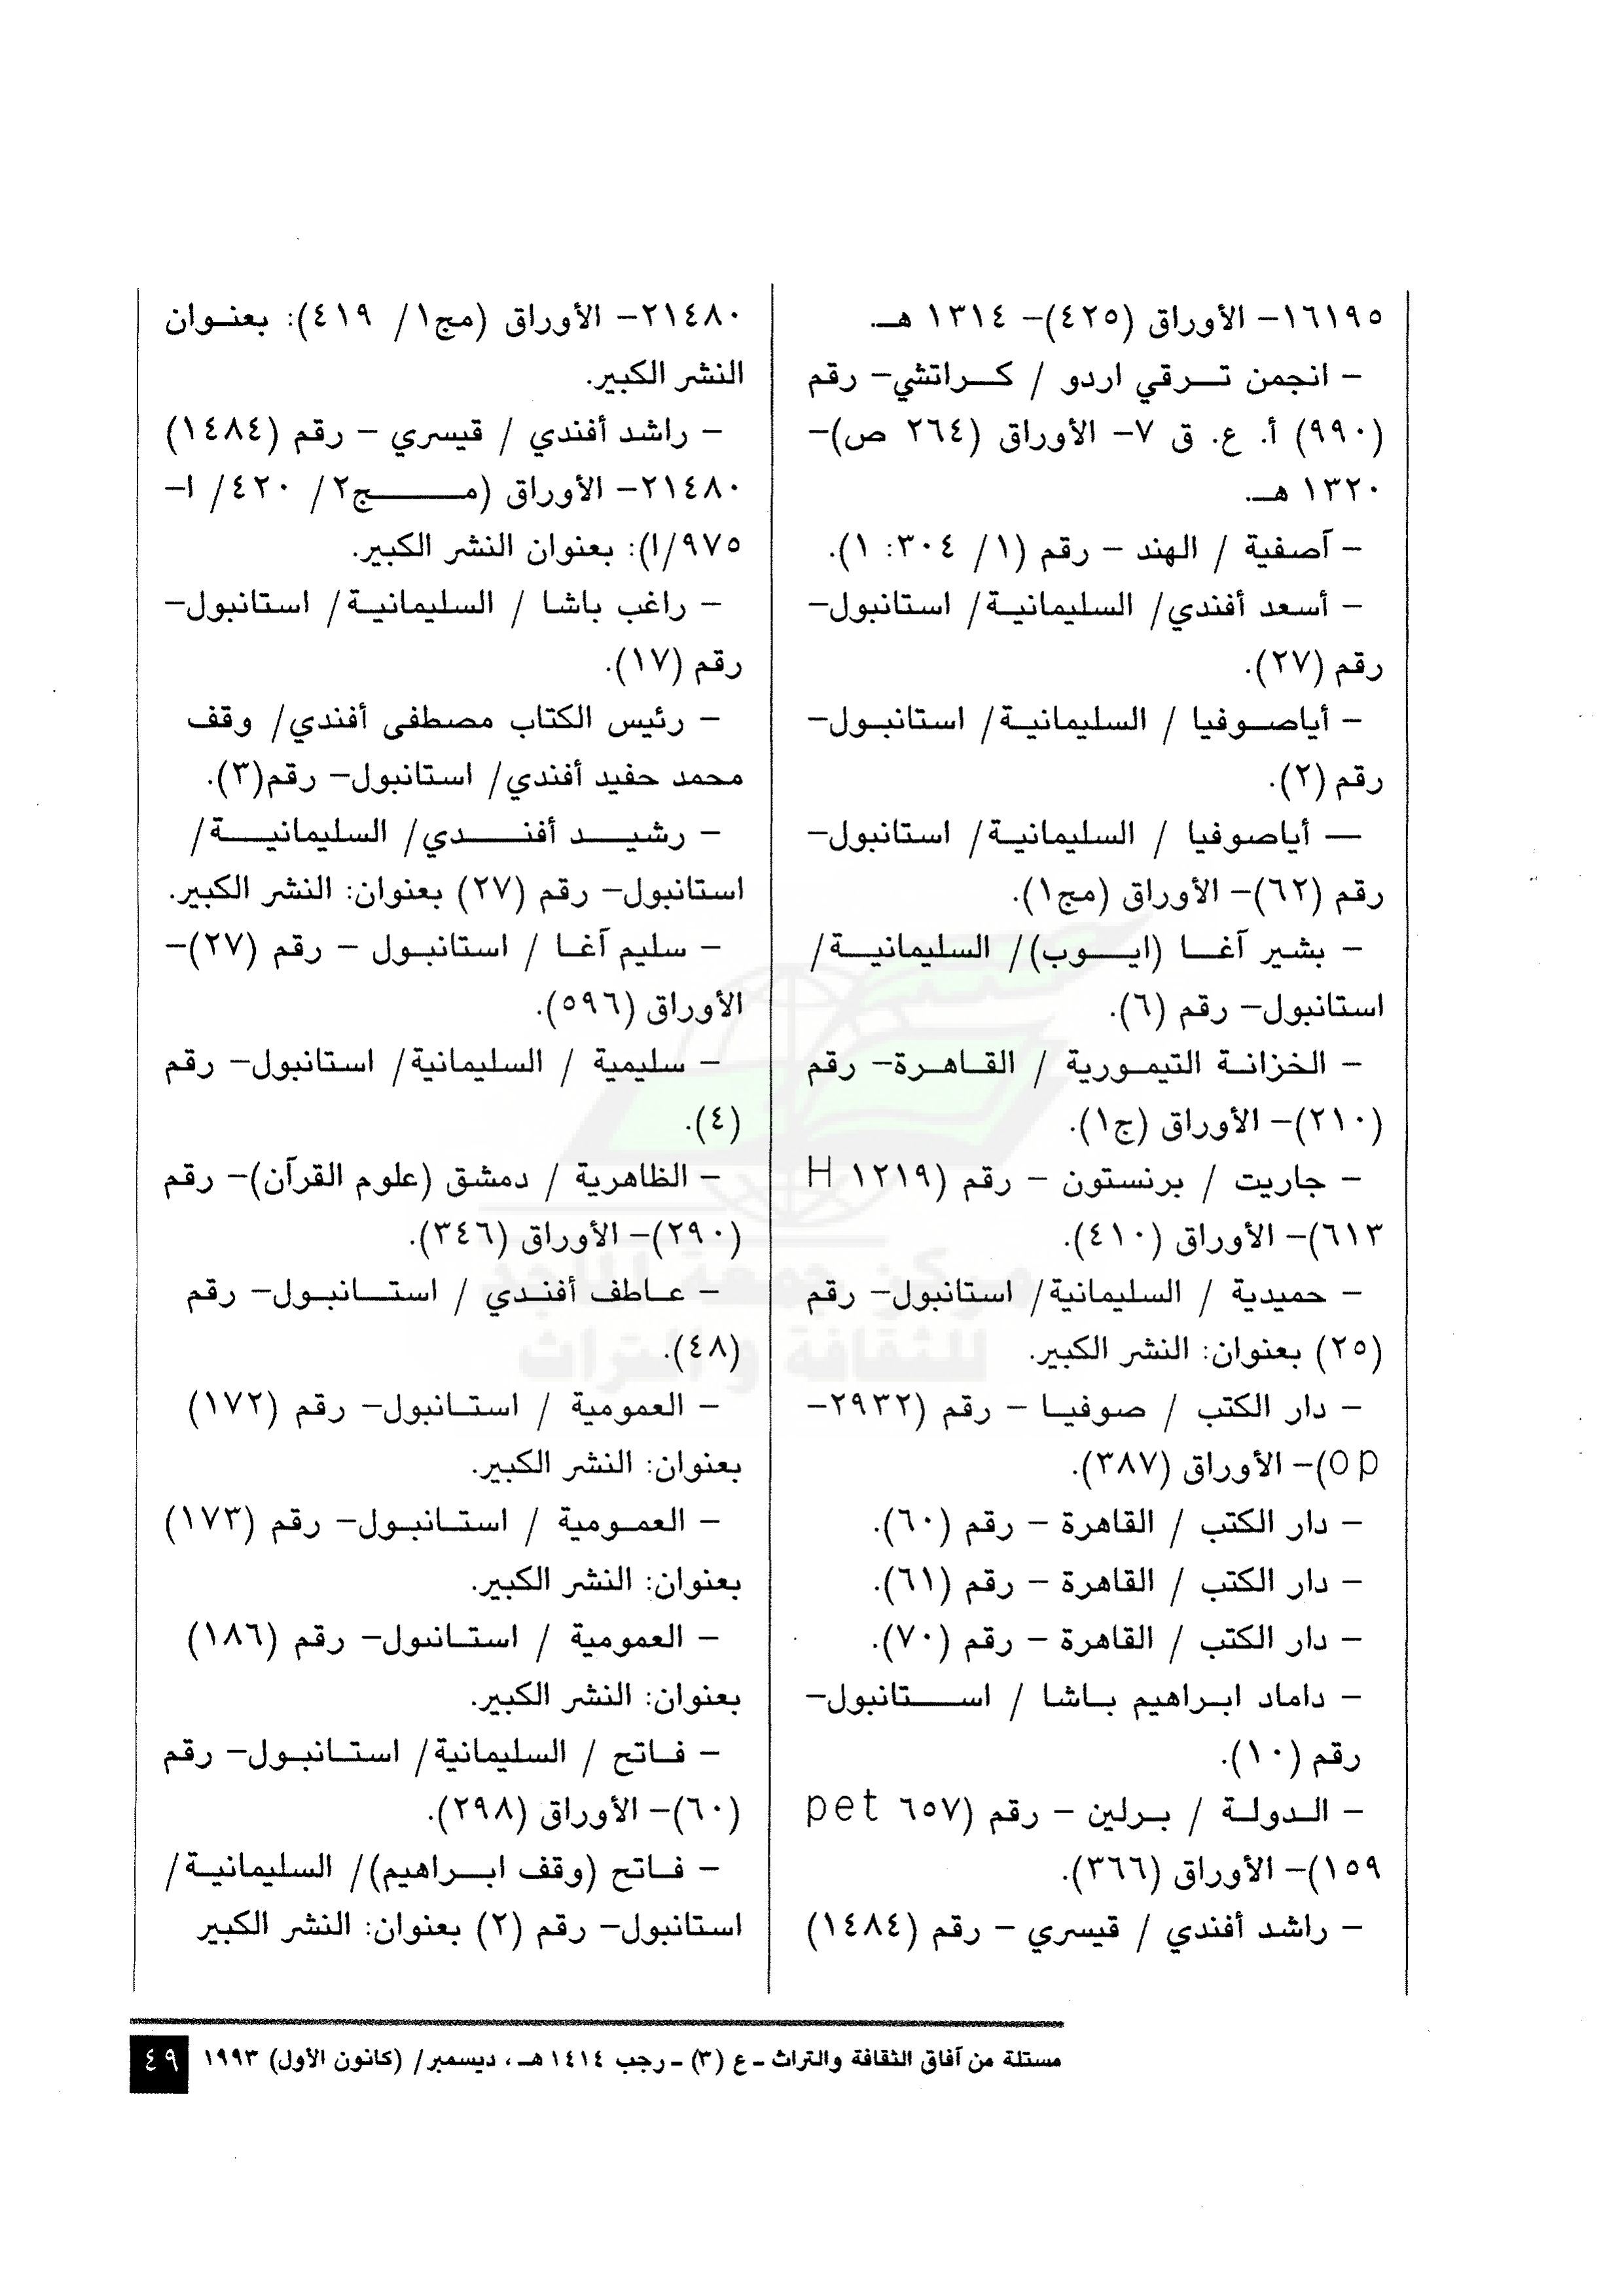 ١٦١٩٥- الأوراق (٤٢٥)- ١٣١٤ هـ.
- انجمن ترقي اردو / كراتشي- رقم
(٩٩٠) أ. ع. ق ٧- الأوراق (٢٦٤ ص)-
١٣٢٠ هـ.
- آصفية / الهند - رقم (١/ ٣٠٤: ١).
- أسعد أفندي/ السليمانية/ استانبول-
رقم (٢٧).
- أياصوفيا / السليمانية/ استانبول-
رقم (٢).
— أياصوفيا / السليمانية/ استانبول-
رقم (٦٢)- الأوراق (مج١).
- بشير آغا (ايوب)/ السليمانية/
استانبول- رقم (٦).
- الخزانة التيمورية / القاهرة- رقم
(٢١٠)- الأوراق (ج١).
- جاريت / برنستون - رقم (١٢١٩ H
٦١٣)- الأوراق (٤١٠).
- حميدية / السليمانية/ استانبول- رقم
(٢٥) بعنوان: النشر الكبير.
- دار الكتب / صوفيا - رقم (٢٩٣٢-
op)- الأوراق (٣٨٧).
- دار الكتب / القاهرة - رقم (٦٠).
- دار الكتب / القاهرة - رقم (٦١).
- دار الكتب / القاهرة - رقم (٧٠).
- داماد ابراهيم باشا / استانبول-
رقم (١٠).
- الدولة / برلين - رقم (٦٥٧ pet
١٥٩)- الأوراق (٣٦٦).
- راشد أفندي / قيسري - رقم (١٤٨٤)
٢١٤٨٠- الأوراق (مج١/ ٤١٩): بعنوان
النشر الكبير.
- راشد أفندي / قيسري - رقم (١٤٨٤)
٢١٤٨٠- الأوراق (مج٢/ ٤٢٠/ ا-
٩٧٥/ا): بعنوان النشر الكبير.
- راغب باشا / السليمانية/ استانبول-
رقم (١٧).
- رئيس الكتاب مصطفى أفندي/ وقف
محمد حفيد أفندي/ استانبول- رقم(٣).
- رشيد أفندي/ السليمانية/
استانبول- رقم (٢٧) بعنوان: النشر الكبير.
- سليم آغا / استانبول - رقم (٢٧)-
الأوراق (٥٩٦).
- سليمية / السليمانية/ استانبول- رقم
(٤).
- الظاهرية / دمشق (علوم القرآن)- رقم
(٢٩٠)- الأوراق (٣٤٦).
- عاطف أفندي / استانبول- رقم
(٤٨).
- العمومية / استانبول- رقم (١٧٢)
بعنوان: النشر الكبير.
- العمومية / استانبول- رقم (١٧٣)
بعنوان: النشر الكبير.
- العمومية / استانبول- رقم (١٨٦)
بعنوان: النشر الكبير.
- فاتح / السليمانية/ استانبول- رقم
(٦٠)- الأوراق (٢٩٨).
- فاتح (وقف ابراهيم)/ السليمانية/
استانبول- رقم (٢) بعنوان: النشر الكبير
مركز جمعة الماجد
للثقافة والتراث
مستلة من آفاق الثقافة والتراث ـ ع (٣) ـ رجب ١٤١٤ هـ، ديسمبر/ (كانون الأول) ١٩٩٣
٤٩